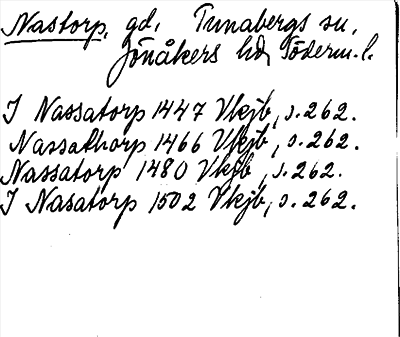 Nastorp, gd, Tunabergs sn,
Jönåkers hd, Söderm. l.
I Nassatorp 1447 Vkjb, s. 262.
Nassathorp 1466 Vkjb, s. 262.
Nassatorp 1480 Vkjb, s. 262.
I Nasatorp 1502 Vkjb, s. 262.